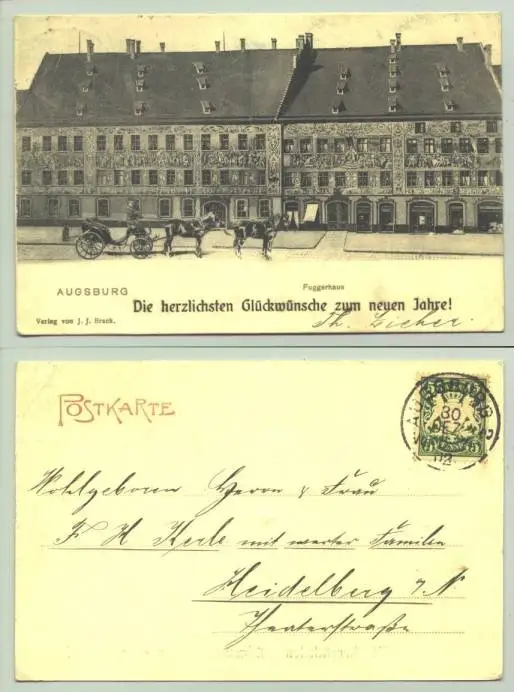 AUGSBURG
Fuggerhaus
Die herzlichsten Glückwünsche zum neuen Jahre!
Verlag von J. J. Brack.
Th.
POSTKARTE
AUGSBURG 2
30
DEZ
02
Wohlgeboren Herrn & Frau
F H Kerle mit werter Familie
Heidelberg a/N
Theaterstraße